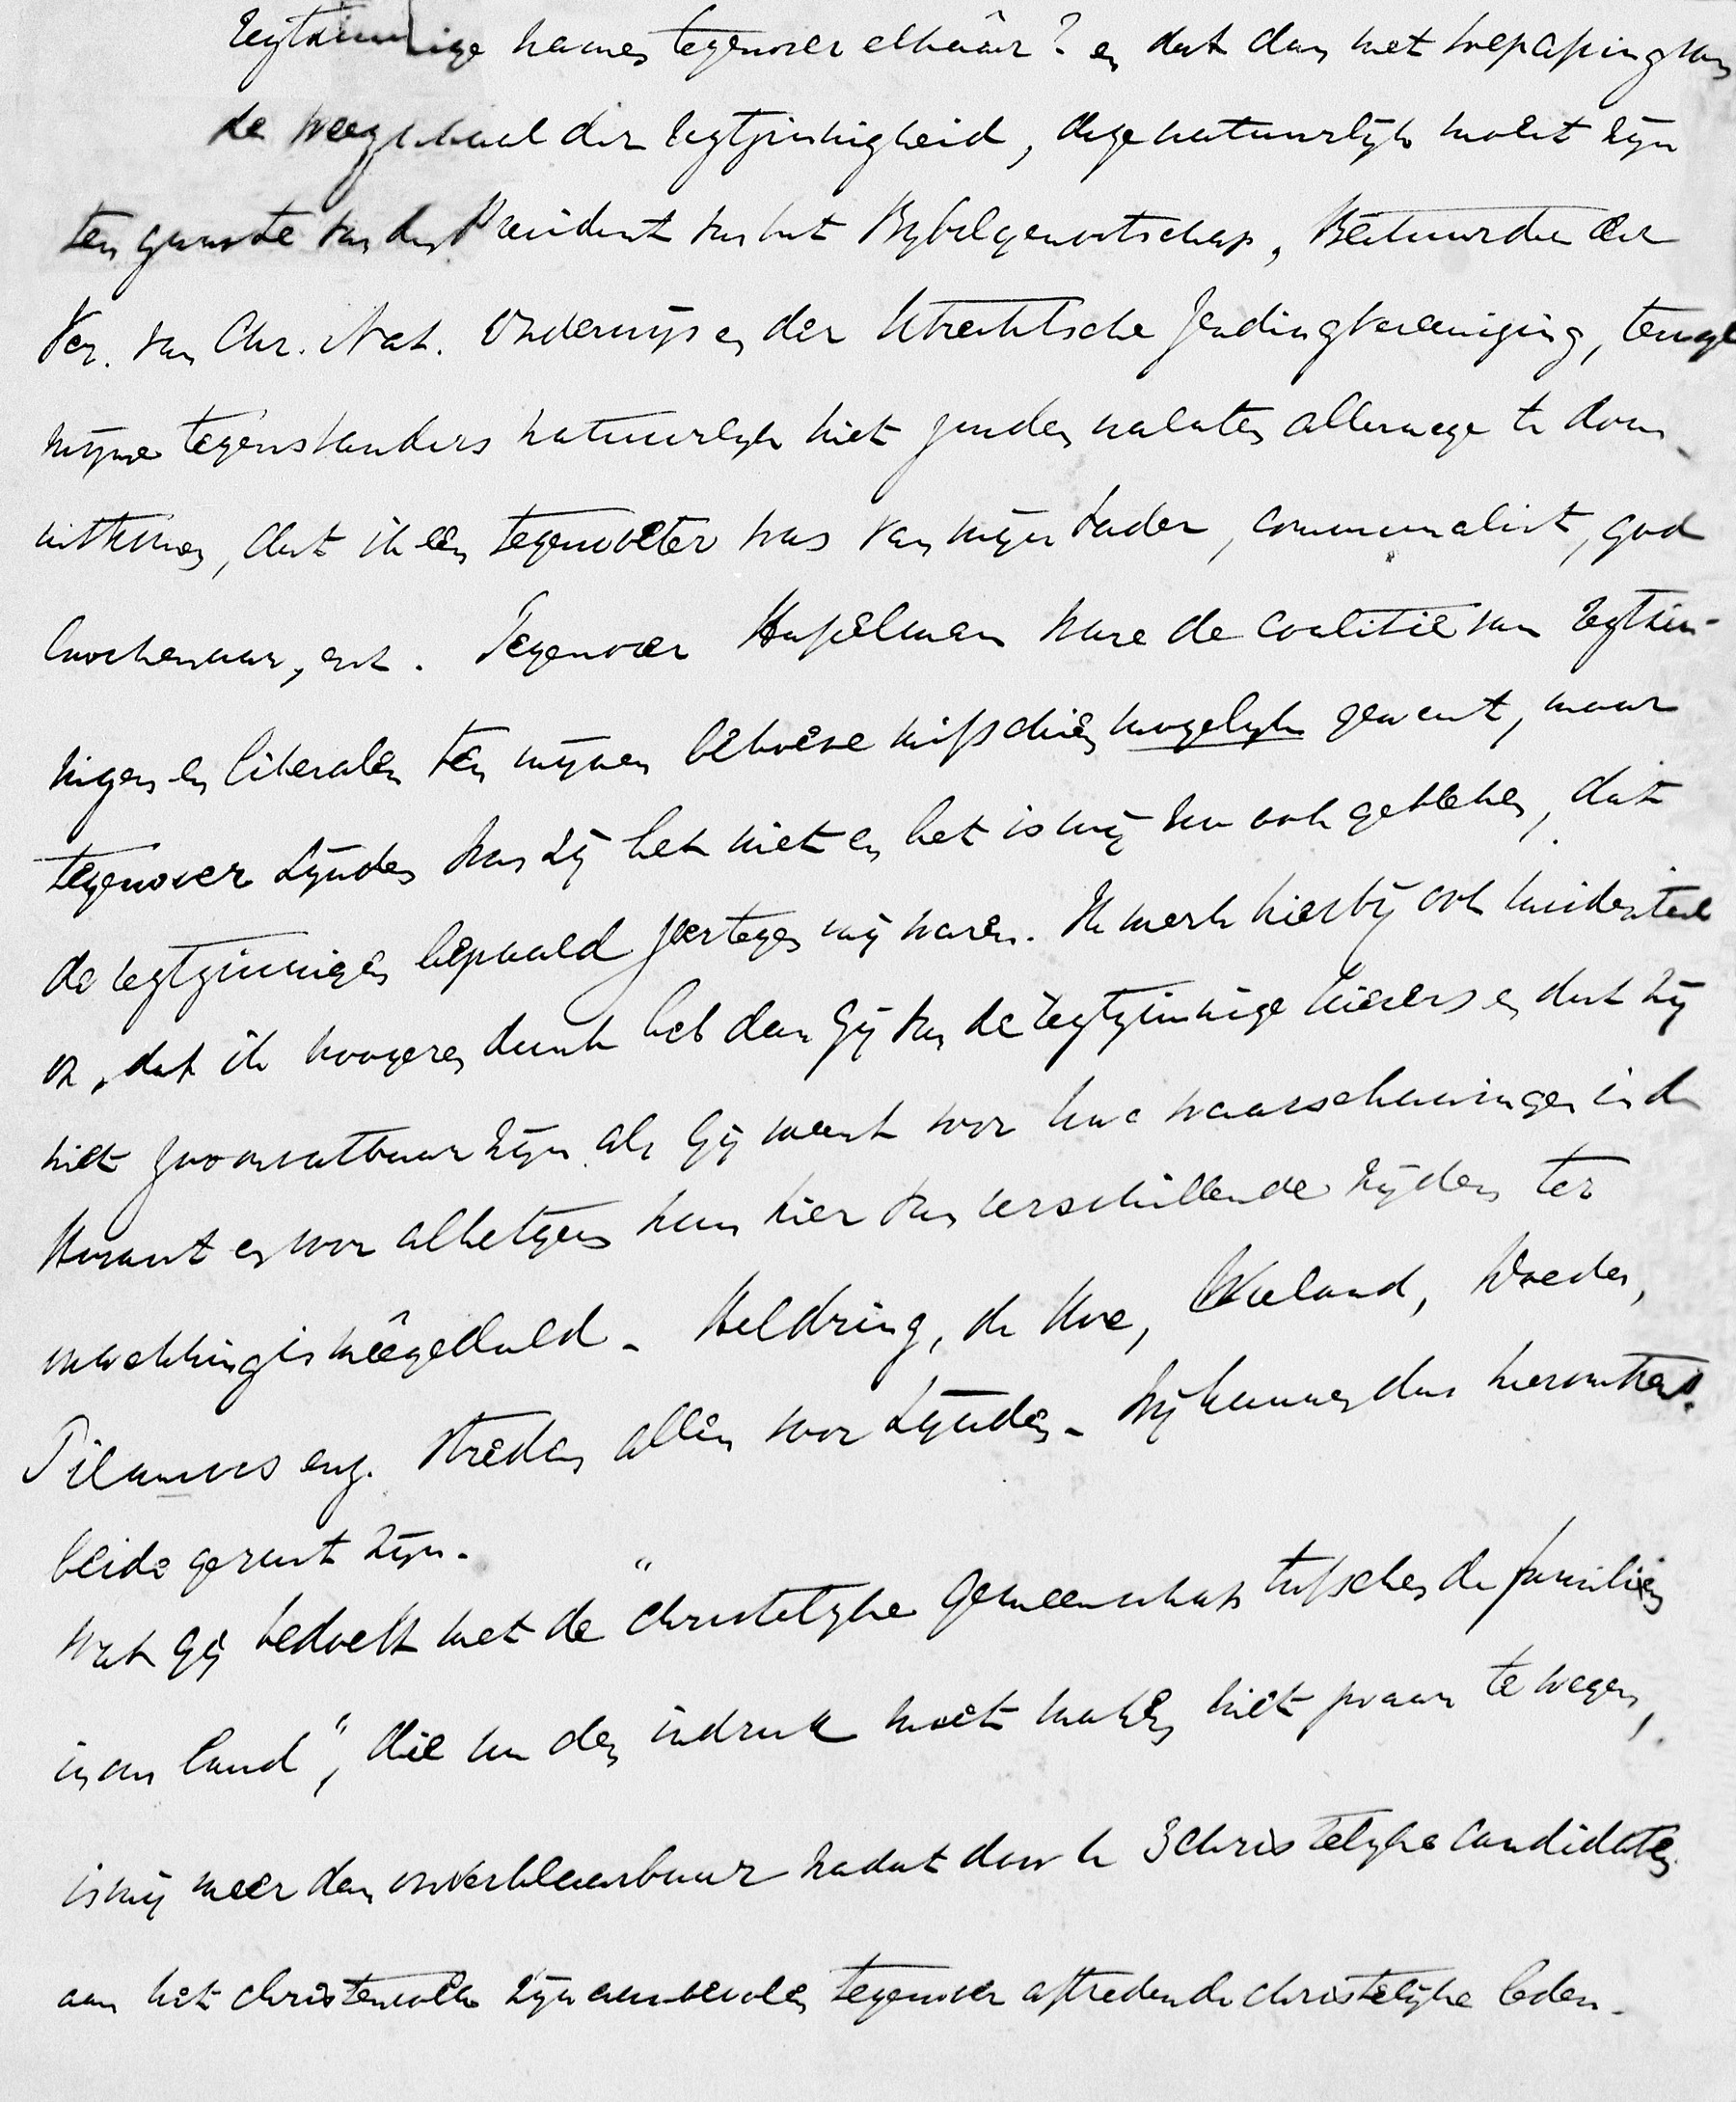 regtzinnige names tegenover elkaâr? en dat dan met toepassing van
de weegschaal der regtzinnigheid, deze natuurlijk moest zijn
ten gunste van den President van het Bybelgenootschap, Bestuurder der
Ver. van Chr. Nat. Onderwijs en der Utrechtsche Zendingvereeniging, terwyl
mijne tegenstanders natuurlijk niet zouden nalaten allerwege te doen
uitkomen, dat ik een tegenvoeter was van mijn vader, communalist, god
loochenaar, enz. Tegenover Hasselman ware de coalitie van regtzin-
nigen en liberalen ten mijnen behoeve misschien mogelyk geweest, maar
tegenover Lynden was zij het niet en het is mij nu ook gebleken, dat
de regtzinnigen bepaald zeer tegen mij waren. Ik merk hierbij ook incidenteel
op, dat ik hoogeren dunk heb dan gij van de regtzinnige kiezers en dat zij
niet zoo onvatbaar zijn als gij meent voor uwe waarschuwingen in de
Kourant en voor alhetgeen hun hier van verschillende zijden ter
opwekking is meêgedeeld. Heldring, de Hoo, Wieland, Woeder,
Pilannus enz. streden allen voor Lynden. Wij kunnen dus hieromtrent
beide gerust zijn.
Wat gij bedoelt met de "christelyke gemeenschap tusschen de familien
in ons land", die nu den indruk moet maken niet zwaar te wegen,
is mij meer dan onverklaarbaar nadat door U 3 christelyke candidaten
aan het christenvolk zijn aanbevolen tegenover aftredende christelyke leden.